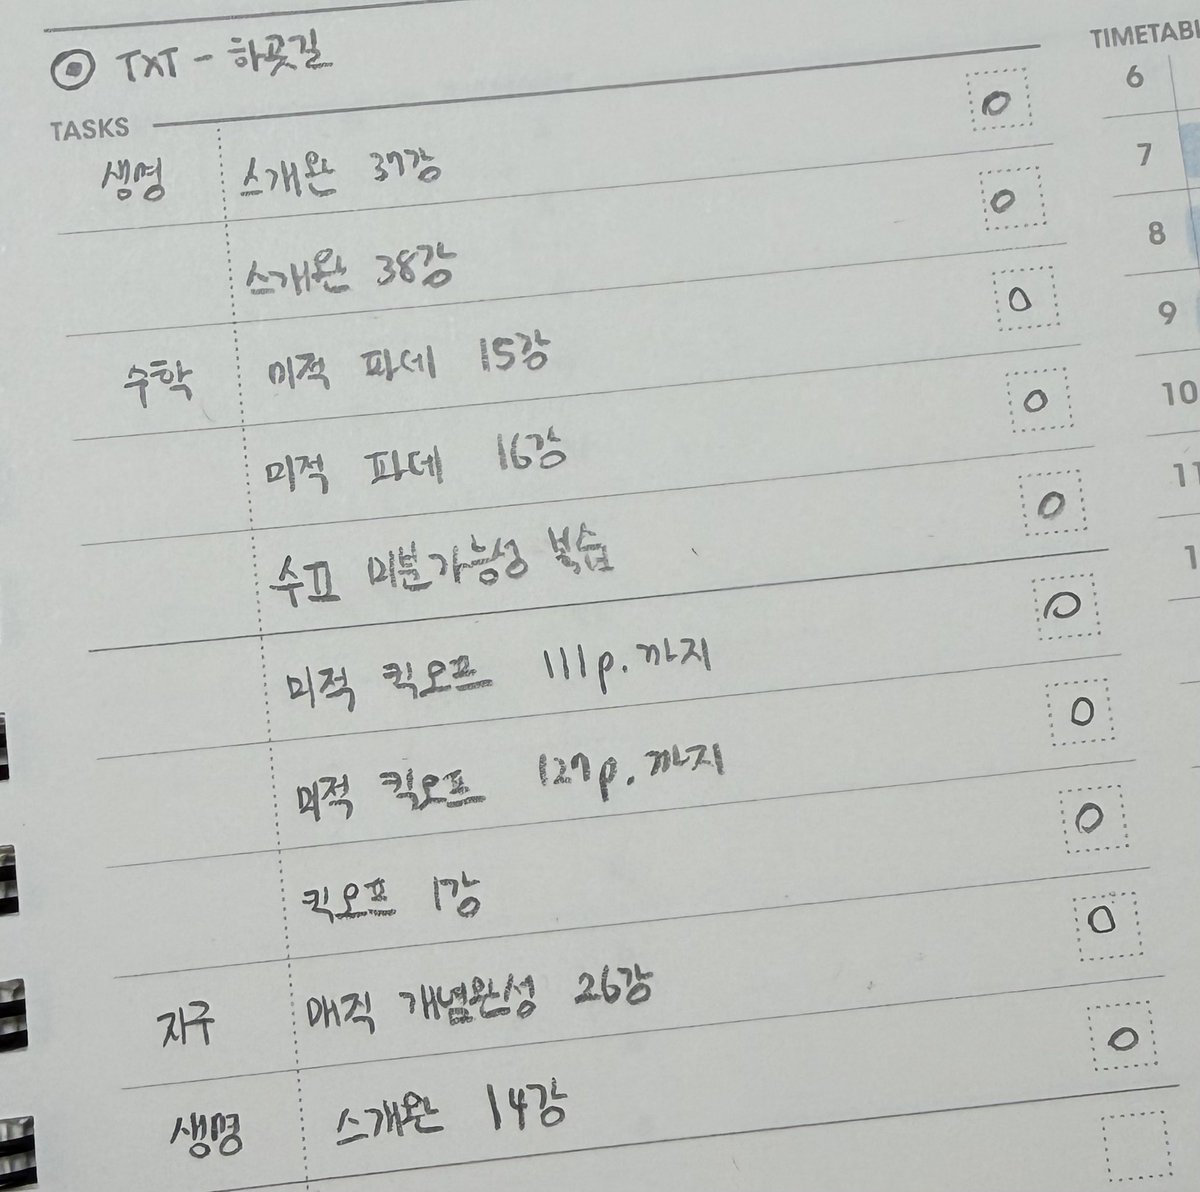 TXT - 하굣길
TASKS
생명 스개완 37강
스개완 38강
수학 미적 파데 15강
미적 파데 16강
수표 미분가능성 복습
미적 킥오프 111p.까지
미적 킥오프 127p.까지
킥오프 1강
지구 매직 개념완성 26강
생명 스개완 14강
TIMETABL
6
7
8
9
10
11
1